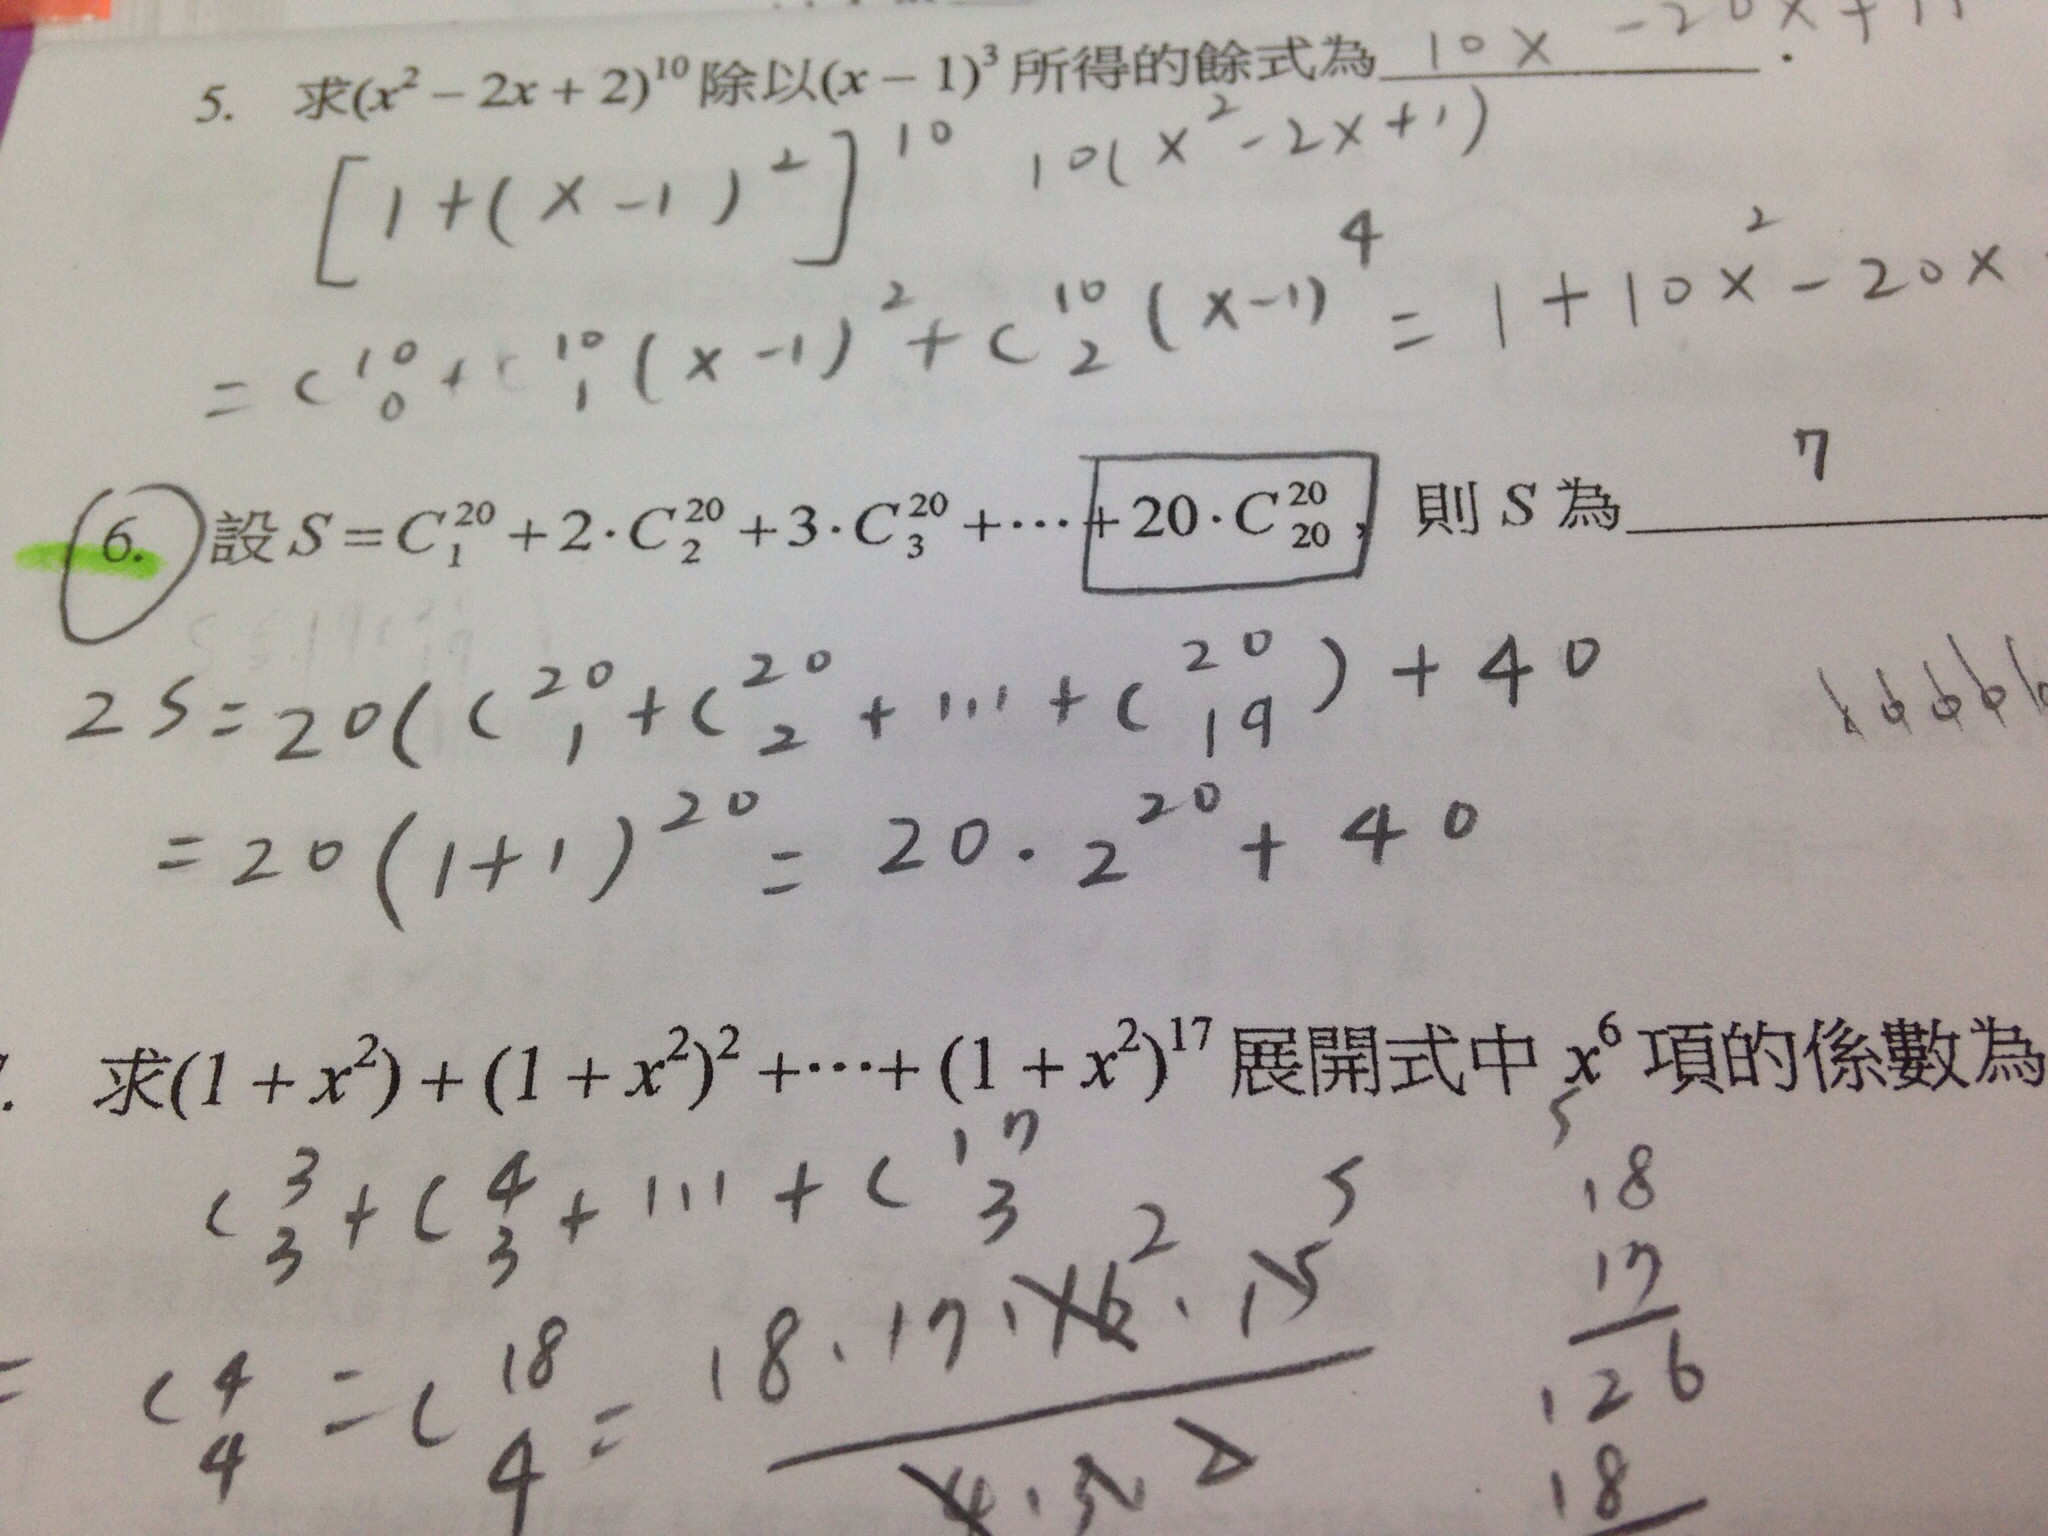 5. 求(x² − 2x + 2)¹⁰ 除以(x − 1)³ 所得的餘式為 10x − 20x + 11 .
[1 + (x − 1)²]¹⁰ 10(x² − 2x + 1)
= C¹⁰₀ + C¹⁰₁ (x − 1)² + C¹⁰₂ (x − 1)⁴ = 1 + 10x² − 20x
7
6. 設 S = C²⁰₁ + 2 · C²⁰₂ + 3 · C²⁰₃ + ⋯ + 20 · C²⁰₂₀ , 則 S 為
2S = 20( C²⁰₁ + C²⁰₂ + ⋯ + C²⁰₁₉ ) + 40
= 20 (1 + 1)²⁰ = 20 · 2²⁰ + 40
. 求(1 + x²) + (1 + x²)² + ⋯ + (1 + x²)¹⁷ 展開式中 x⁶ 項的係數為
C³₃ + C⁴₃ + ⋯ + C¹⁷₃
= C⁴₄ = C¹⁸₄ = 18 · 17 · 16 · 15 / 4 · 3 · 2
2 5
5
18
17
126
18